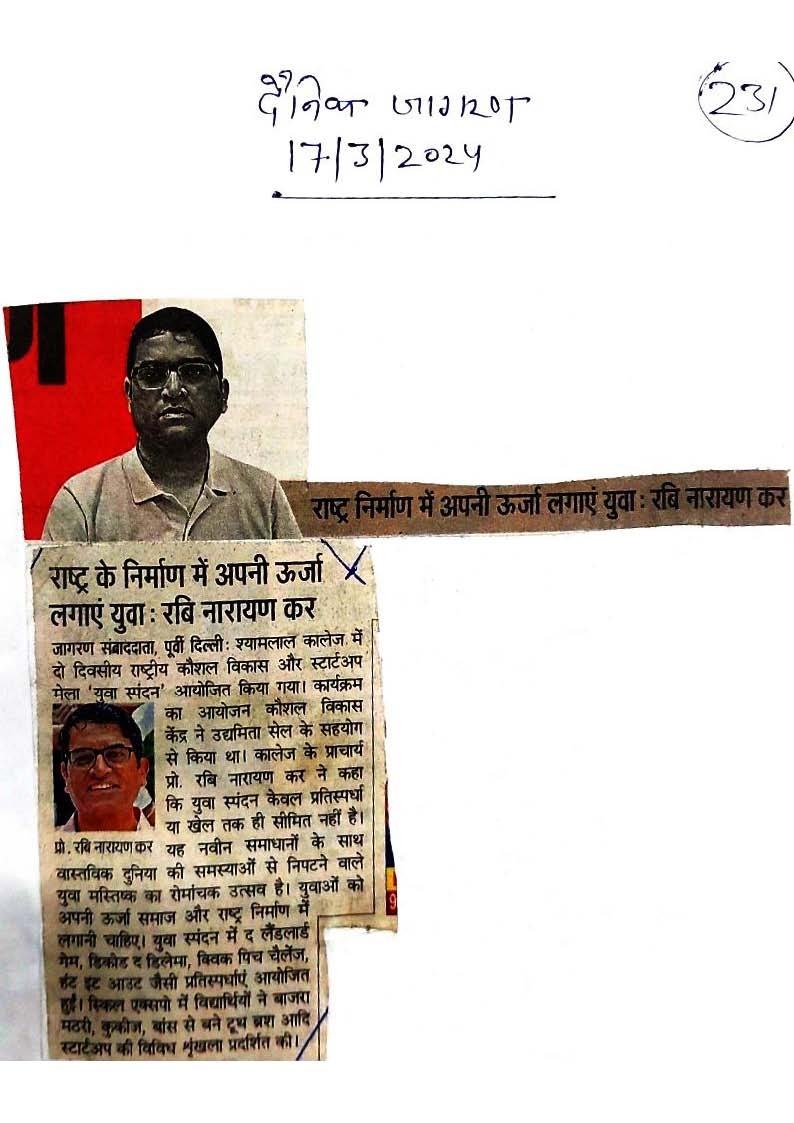 दैनिक जागरण
17/3/2024
231
राष्ट्र निर्माण में अपनी ऊर्जा लगाएं युवा : रबि नारायण कर
राष्ट्र के निर्माण में अपनी ऊर्जा
लगाएं युवा : रबि नारायण कर
जागरण संवाददाता, पूर्वी दिल्ली : श्यामलाल कालेज में
दो दिवसीय राष्ट्रीय कौशल विकास और स्टार्टअप
मेला 'युवा स्पंदन' आयोजित किया गया। कार्यक्रम
का आयोजन कौशल विकास
केंद्र ने उद्यमिता सेल के सहयोग
से किया था। कालेज के प्राचार्य
प्रो. रबि नारायण कर ने कहा
कि युवा स्पंदन केवल प्रतिस्पर्धा
या खेल तक ही सीमित नहीं है।
प्रो. रबि नारायण कर
यह नवीन समाधानों के साथ
वास्तविक दुनिया की समस्याओं से निपटने वाले
युवा मस्तिष्क का रोमांचक उत्सव है। युवाओं को
अपनी ऊर्जा समाज और राष्ट्र निर्माण में
लगानी चाहिए। युवा स्पंदन में द लैंडलार्ड
गेम, डिकोड द डिलेमा, क्विक पिच चैलेंज,
हंट इट आउट जैसी प्रतिस्पर्धाएं आयोजित
हुईं। स्किल एक्सपो में विद्यार्थियों ने बाजरा
मठरी, कुकीज, बांस से बने टूथ ब्रश आदि
स्टार्टअप की विविध शृंखला प्रदर्शित की।